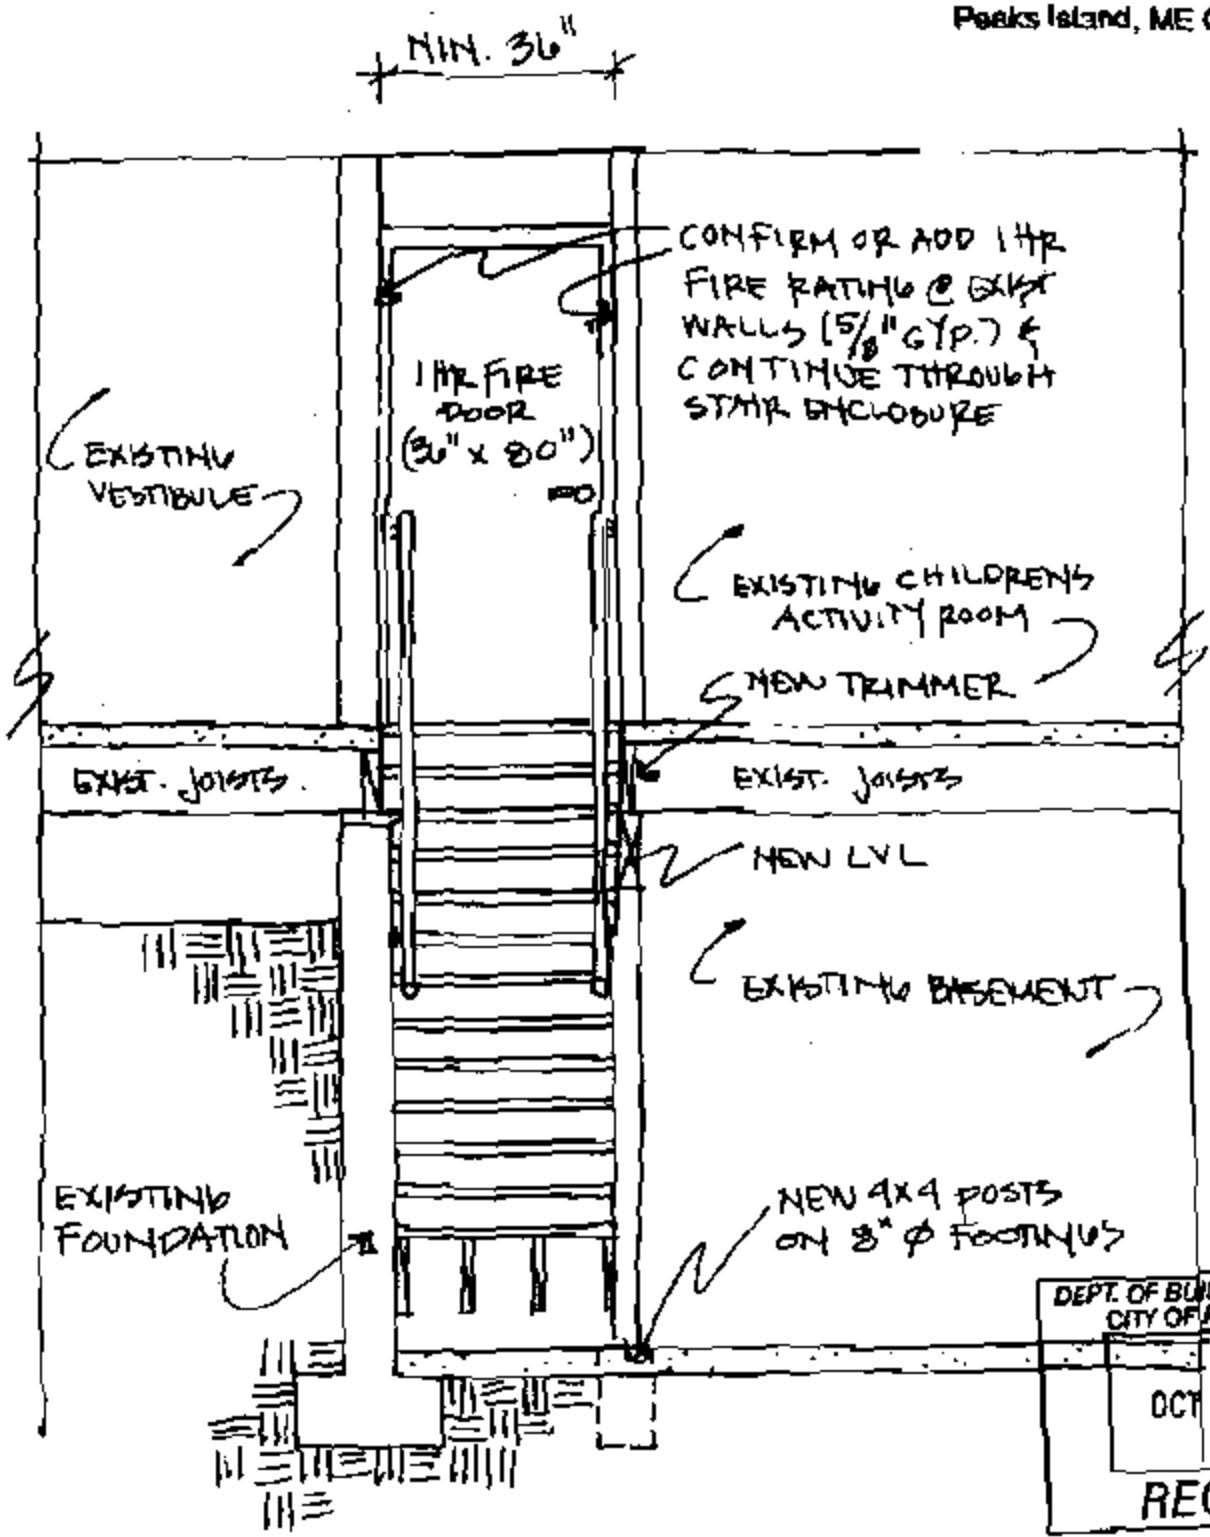 Peaks Island, ME
MIN. 36"
CONFIRM OR ADD 1 HR
FIRE RATING @ EXIST
WALLS (5/8" GYP.) &
CONTINUE THROUGH
STAIR ENCLOSURE
1 HR FIRE
DOOR
(36" x 80")
EXISTING
VESTIBULE
EXISTING CHILDRENS
ACTIVITY ROOM
NEW TRIMMER
EXIST. JOISTS.
EXIST. JOISTS
NEW LVL
EXISTING BASEMENT
EXISTING
FOUNDATION
NEW 4X4 POSTS
ON 8" Ø FOOTINGS
DEPT. OF BUI
CITY OF
OCT
REC